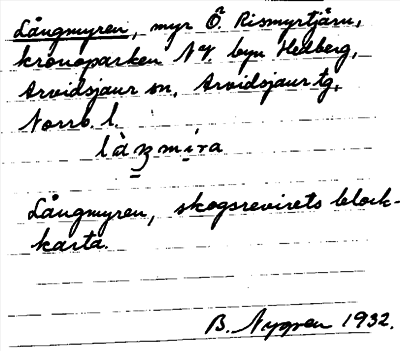 Långmyren, myr Ö. Rismyrtjärn,
kronoparken NV. byn Hedberg,
Arvidsjaur sn, Arvidsjaur tg,
Norrb. l.
Långmyren, skogsrevirets block-
karta.
B. Nygren 1932.